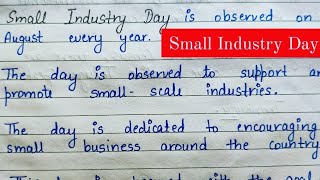 Small Industry Day is observed on
August every year.
Small Industry Day
The day is observed to support an
promote small-scale industries.
The day is dedicated to encouraging
small business around the country